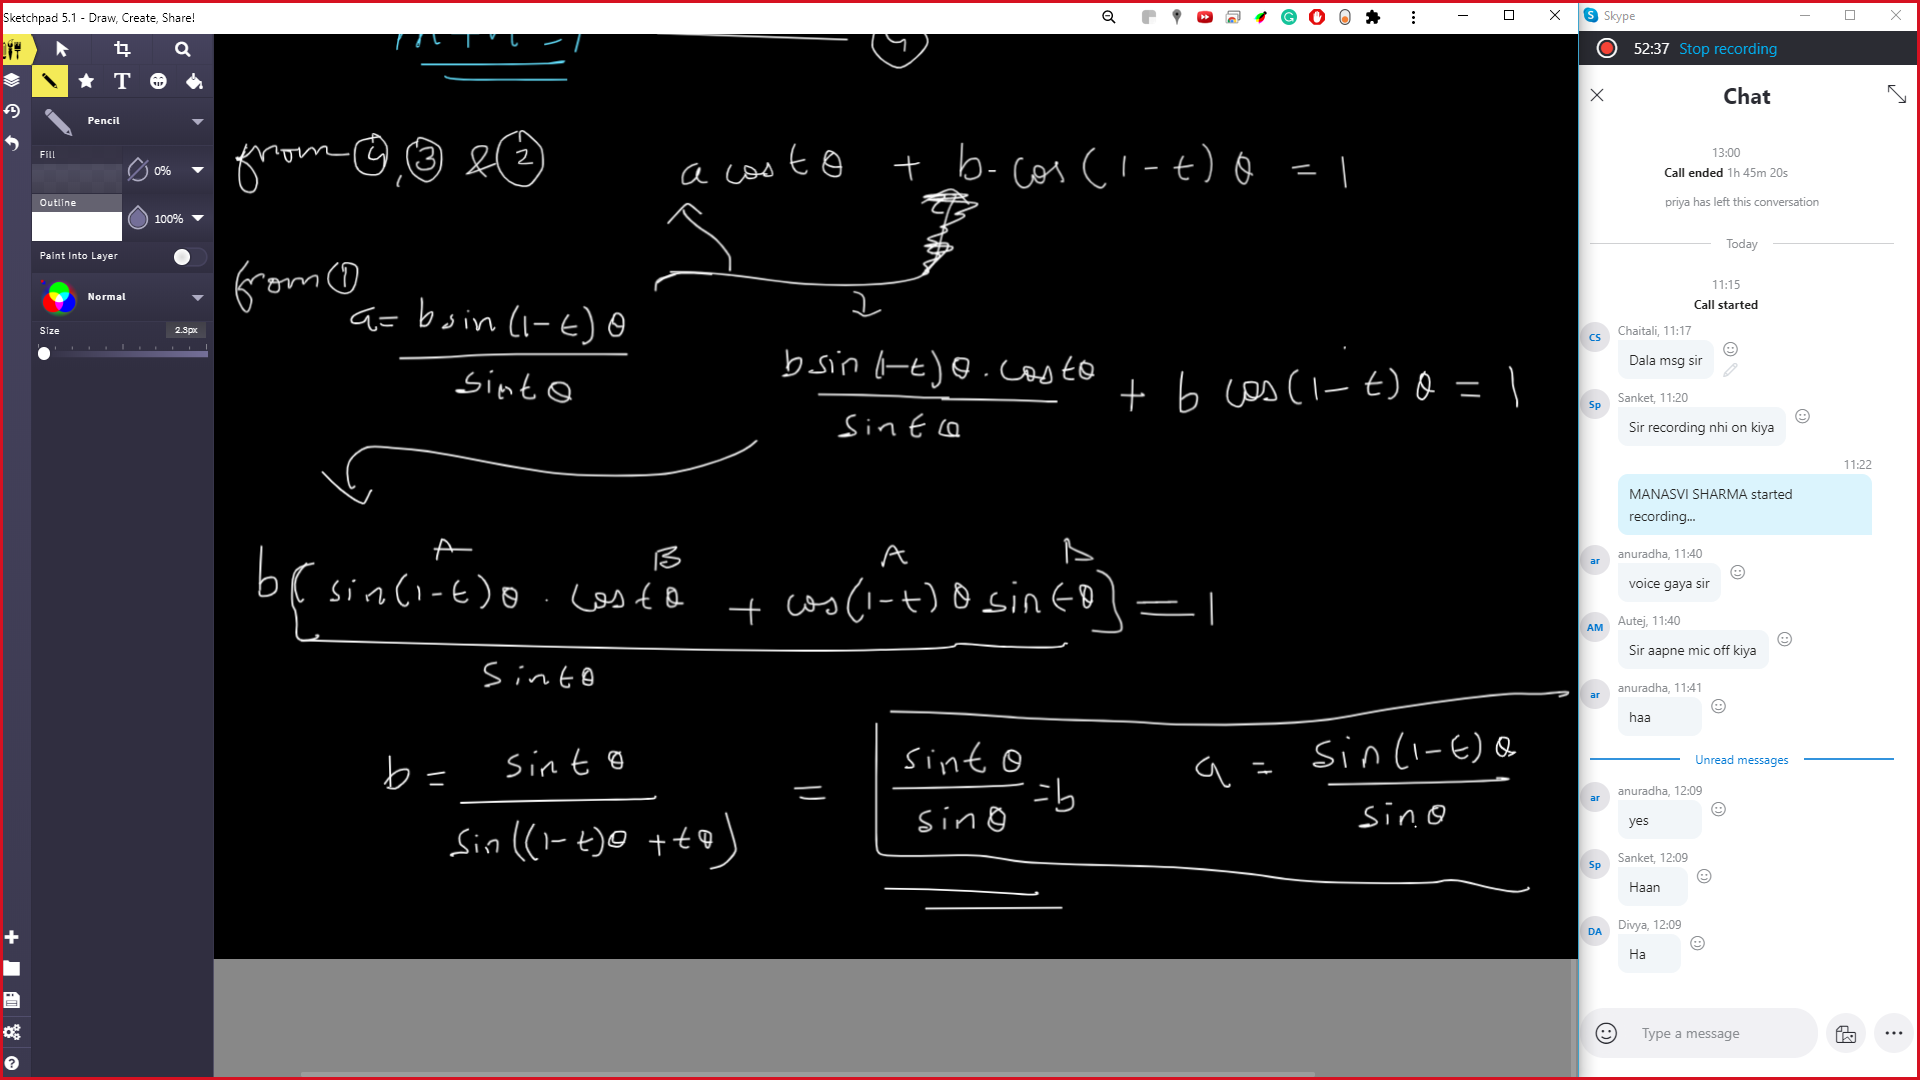 Sketchpad 5.1 - Draw, Create, Share!
Pencil
Fill
0%
Outline
100%
Paint Into Layer
Normal
Size
2.3px
from ④, ③ & ② a cos t θ + b. cos (1-t) θ = 1
from ①
a = b sin (1-t) θ
sin t θ
b sin (1-t) θ . cos t θ + b cos (1-t) θ = 1
sin t θ
A B A B
b [ sin (1-t) θ . cos t θ + cos (1-t) θ sin t θ ] = 1
sin t θ
b = sin t θ = sin t θ = b a = sin (1-t) θ
sin ((1-t) θ + t θ) sin θ sin θ
Skype
52:37 Stop recording
Chat
13:00
Call ended 1h 45m 20s
priya has left this conversation
Today
11:15
Call started
CS
Chaitali, 11:17
Dala msg sir
Sp
Sanket, 11:20
Sir recording nhi on kiya
11:22
MANASVI SHARMA started
recording...
ar
anuradha, 11:40
voice gaya sir
AM
Autej, 11:40
Sir aapne mic off kiya
ar
anuradha, 11:41
haa
Unread messages
ar
anuradha, 12:09
yes
Sp
Sanket, 12:09
Haan
DA
Divya, 12:09
Ha
Type a message